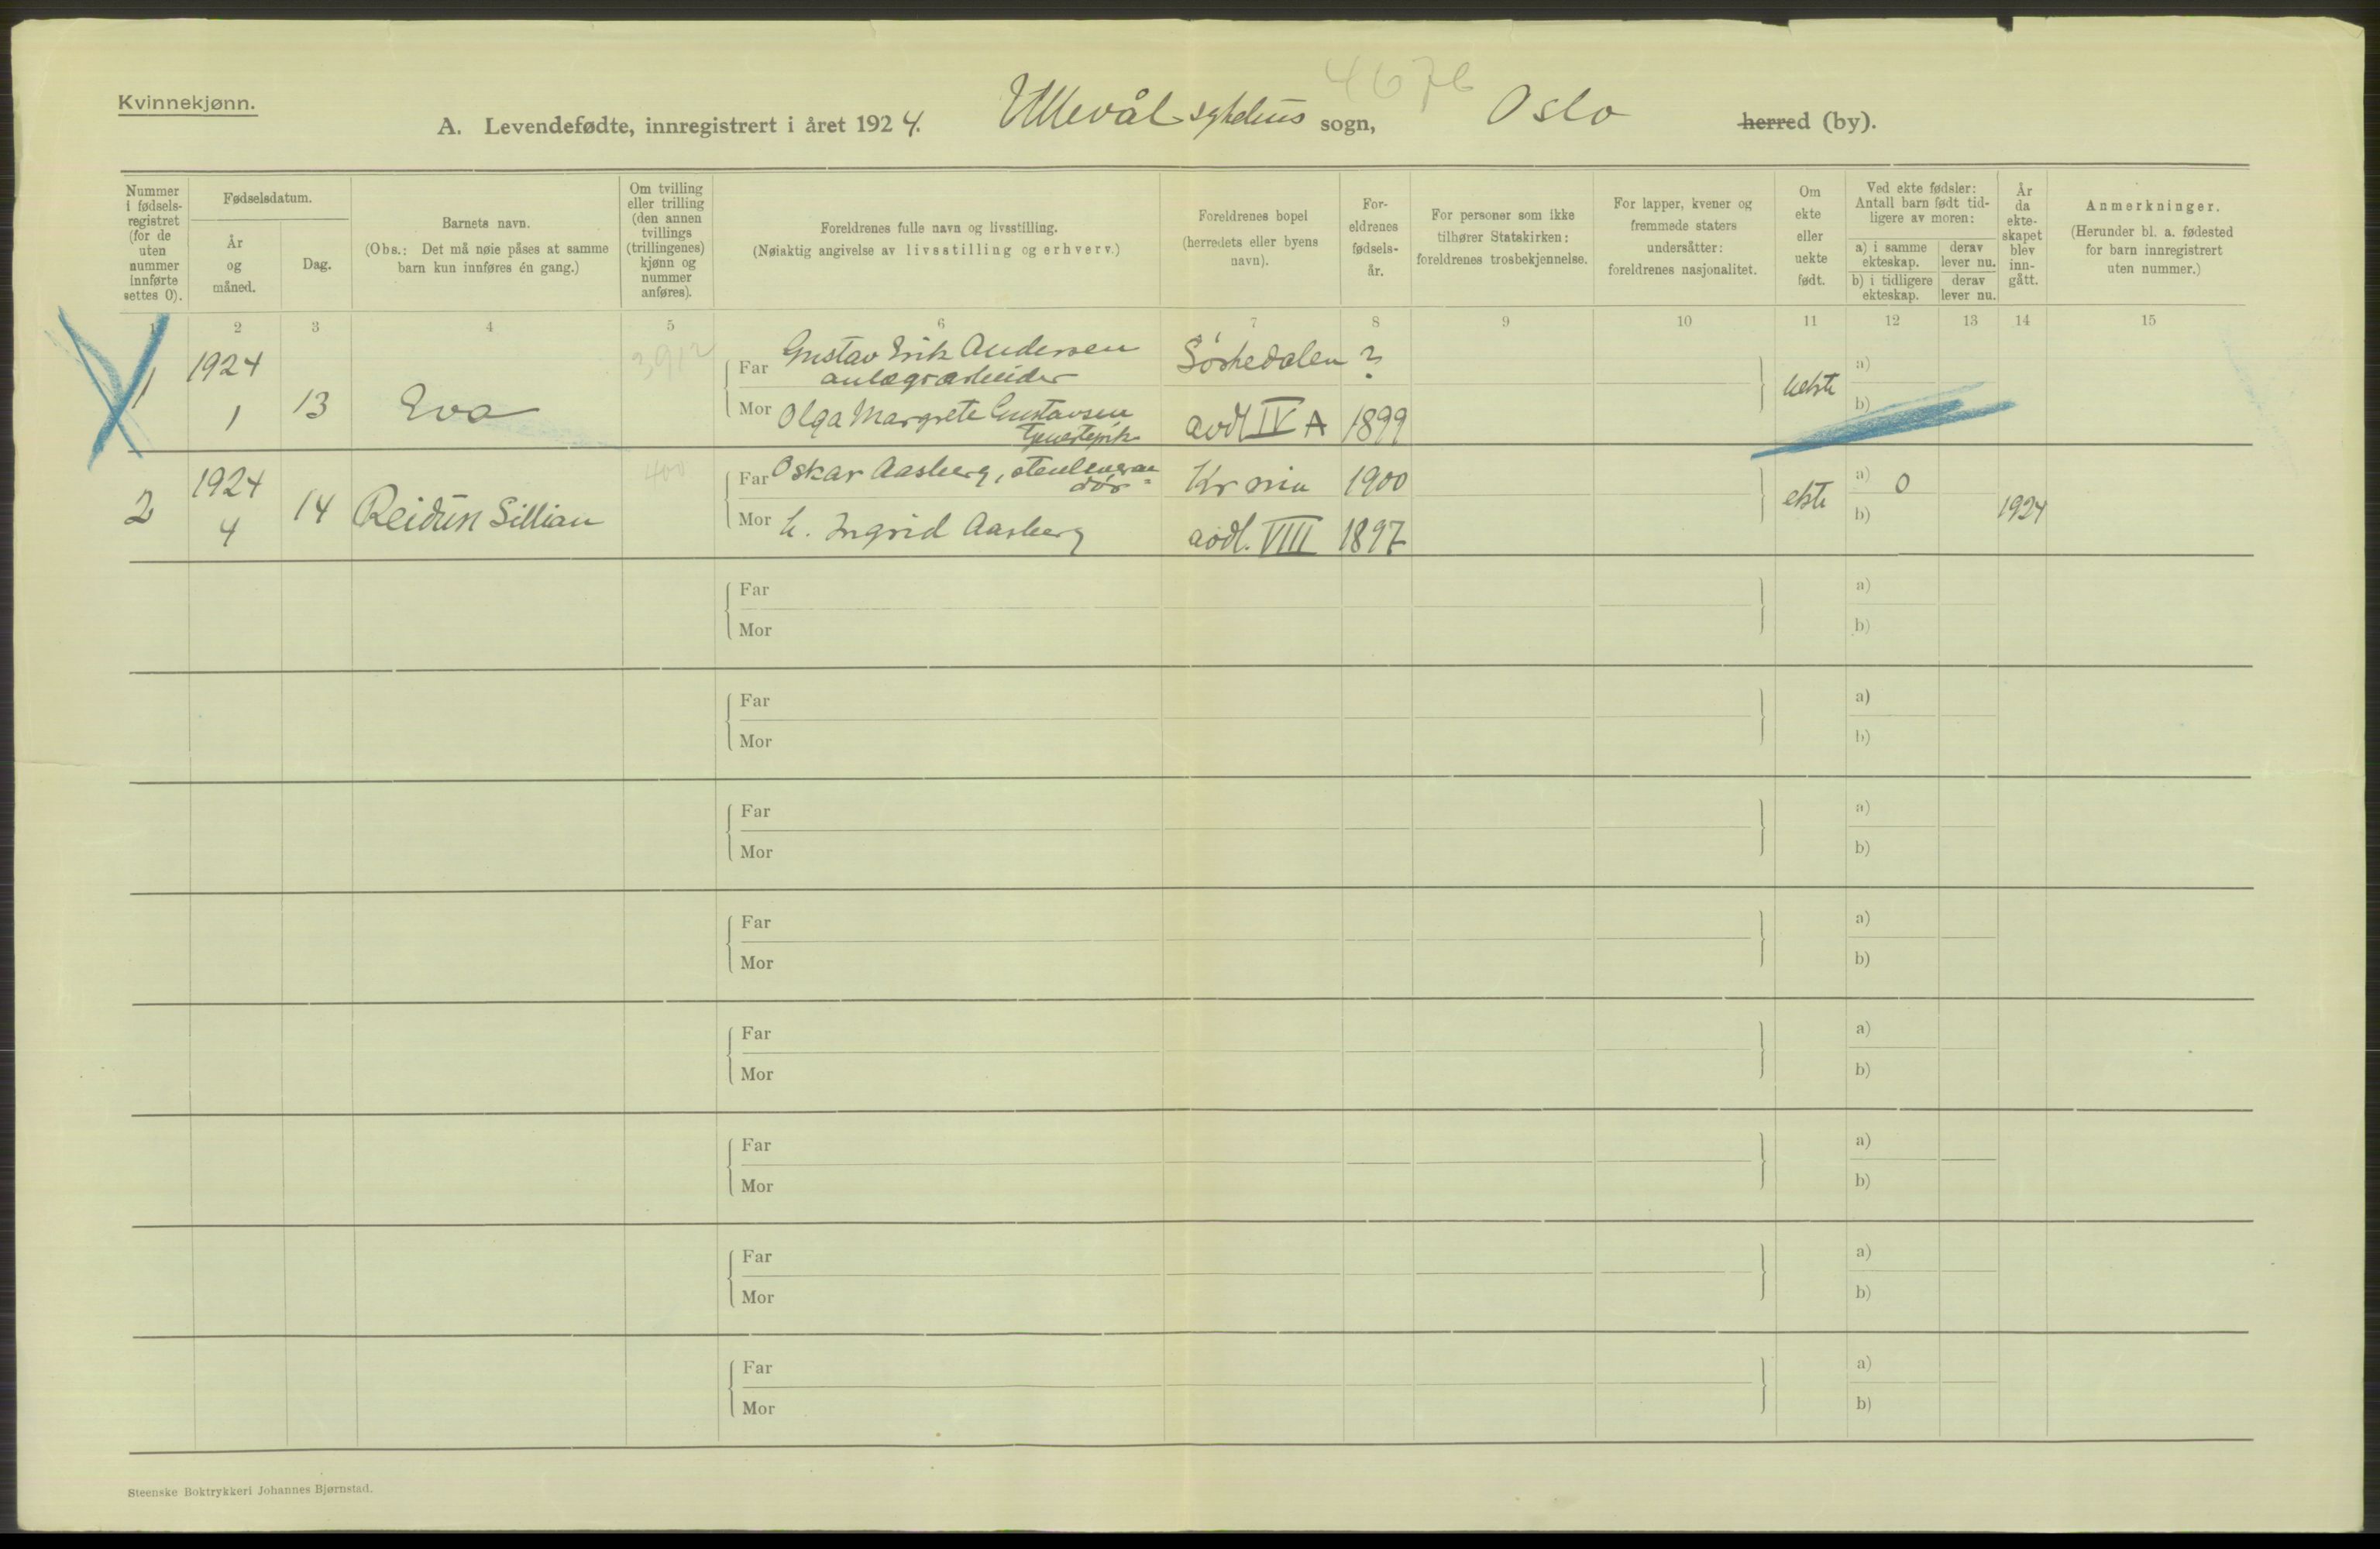 Kvinnekjønn.
4676
A. Levendefødte, innregistrert i året 1924. Ullevål sykehus sogn, Oslo herred (by).
Nummer i fødsels-registret (for de uten nummer innførte settes 0).
Fødselsdatum.
År og måned.
Dag.
Barnets navn.
(Obs.: Det må nøie påses at samme barn kun innføres én gang.)
Om tvilling eller trilling (den annen tvillings (trillingenes) kjønn og nummer anføres).
Foreldrenes fulle navn og livsstilling.
(Nøiaktig angivelse av livsstilling og erhverv.)
Foreldrenes bopel (herredets eller byens navn).
For-eldrenes fødsels-år.
For personer som ikke tilhører Statskirken: foreldrenes trosbekjennelse.
For lapper, kvener og fremmede staters undersåtter: foreldrenes nasjonalitet.
Om ekte eller uekte født.
Ved ekte fødsler: Antall barn født tid-ligere av moren:
a) i samme ekteskap.
derav lever nu.
b) i tidligere ekteskap.
derav lever nu.
År da ekte-skapet blev inn-gått.
Anmerkninger.
(Herunder bl. a. fødested for barn innregistrert uten nummer.)
1 2 3 4 5 6 7 8 9 10 11 12 13 14 15
1 1924 1 13 Eva 3912
Far Gustav Erik Andersen anlægsarbeider Sørkedalen ?
Mor Olga Margrete Gustavsen tjenestepike avdl IV A 1899
uekte a) b)
2 1924 4 14 Reidun Sillian 400
Far Oskar Aasberg, stenleverandør Kr nia 1900
Mor h. Ingrid Aasberg avdl. VIII 1897
ekte a) 0 b) 1924
Far a)
Mor b)
Far a)
Mor b)
Far a)
Mor b)
Far a)
Mor b)
Far a)
Mor b)
Far a)
Mor b)
Far a)
Mor b)
Far a)
Mor b)
Steenske Boktrykkeri Johannes Bjørnstad.